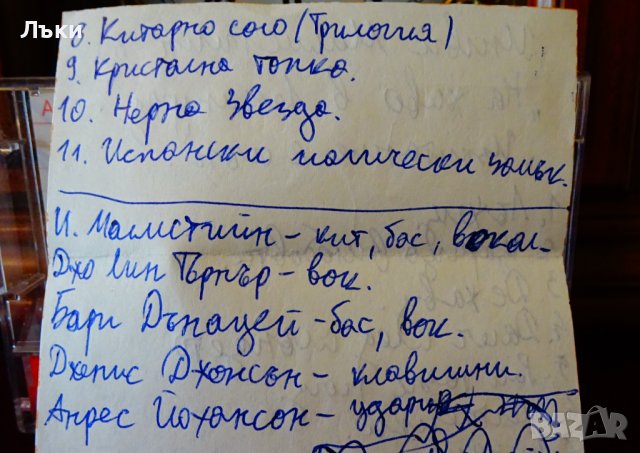 Лъки
8. Китарно соло (Трилогия)
9. Кристална топка.
10. Черна звезда.
11. Испански готически замък.
И. Малмстийн – кит, бас, вокал.
Джо Лин Търнър – вок.
Бари Дънауей – бас, вок.
Дженс Джонсън – клавишни.
Андрес Йохансон – ударни
BAZAR